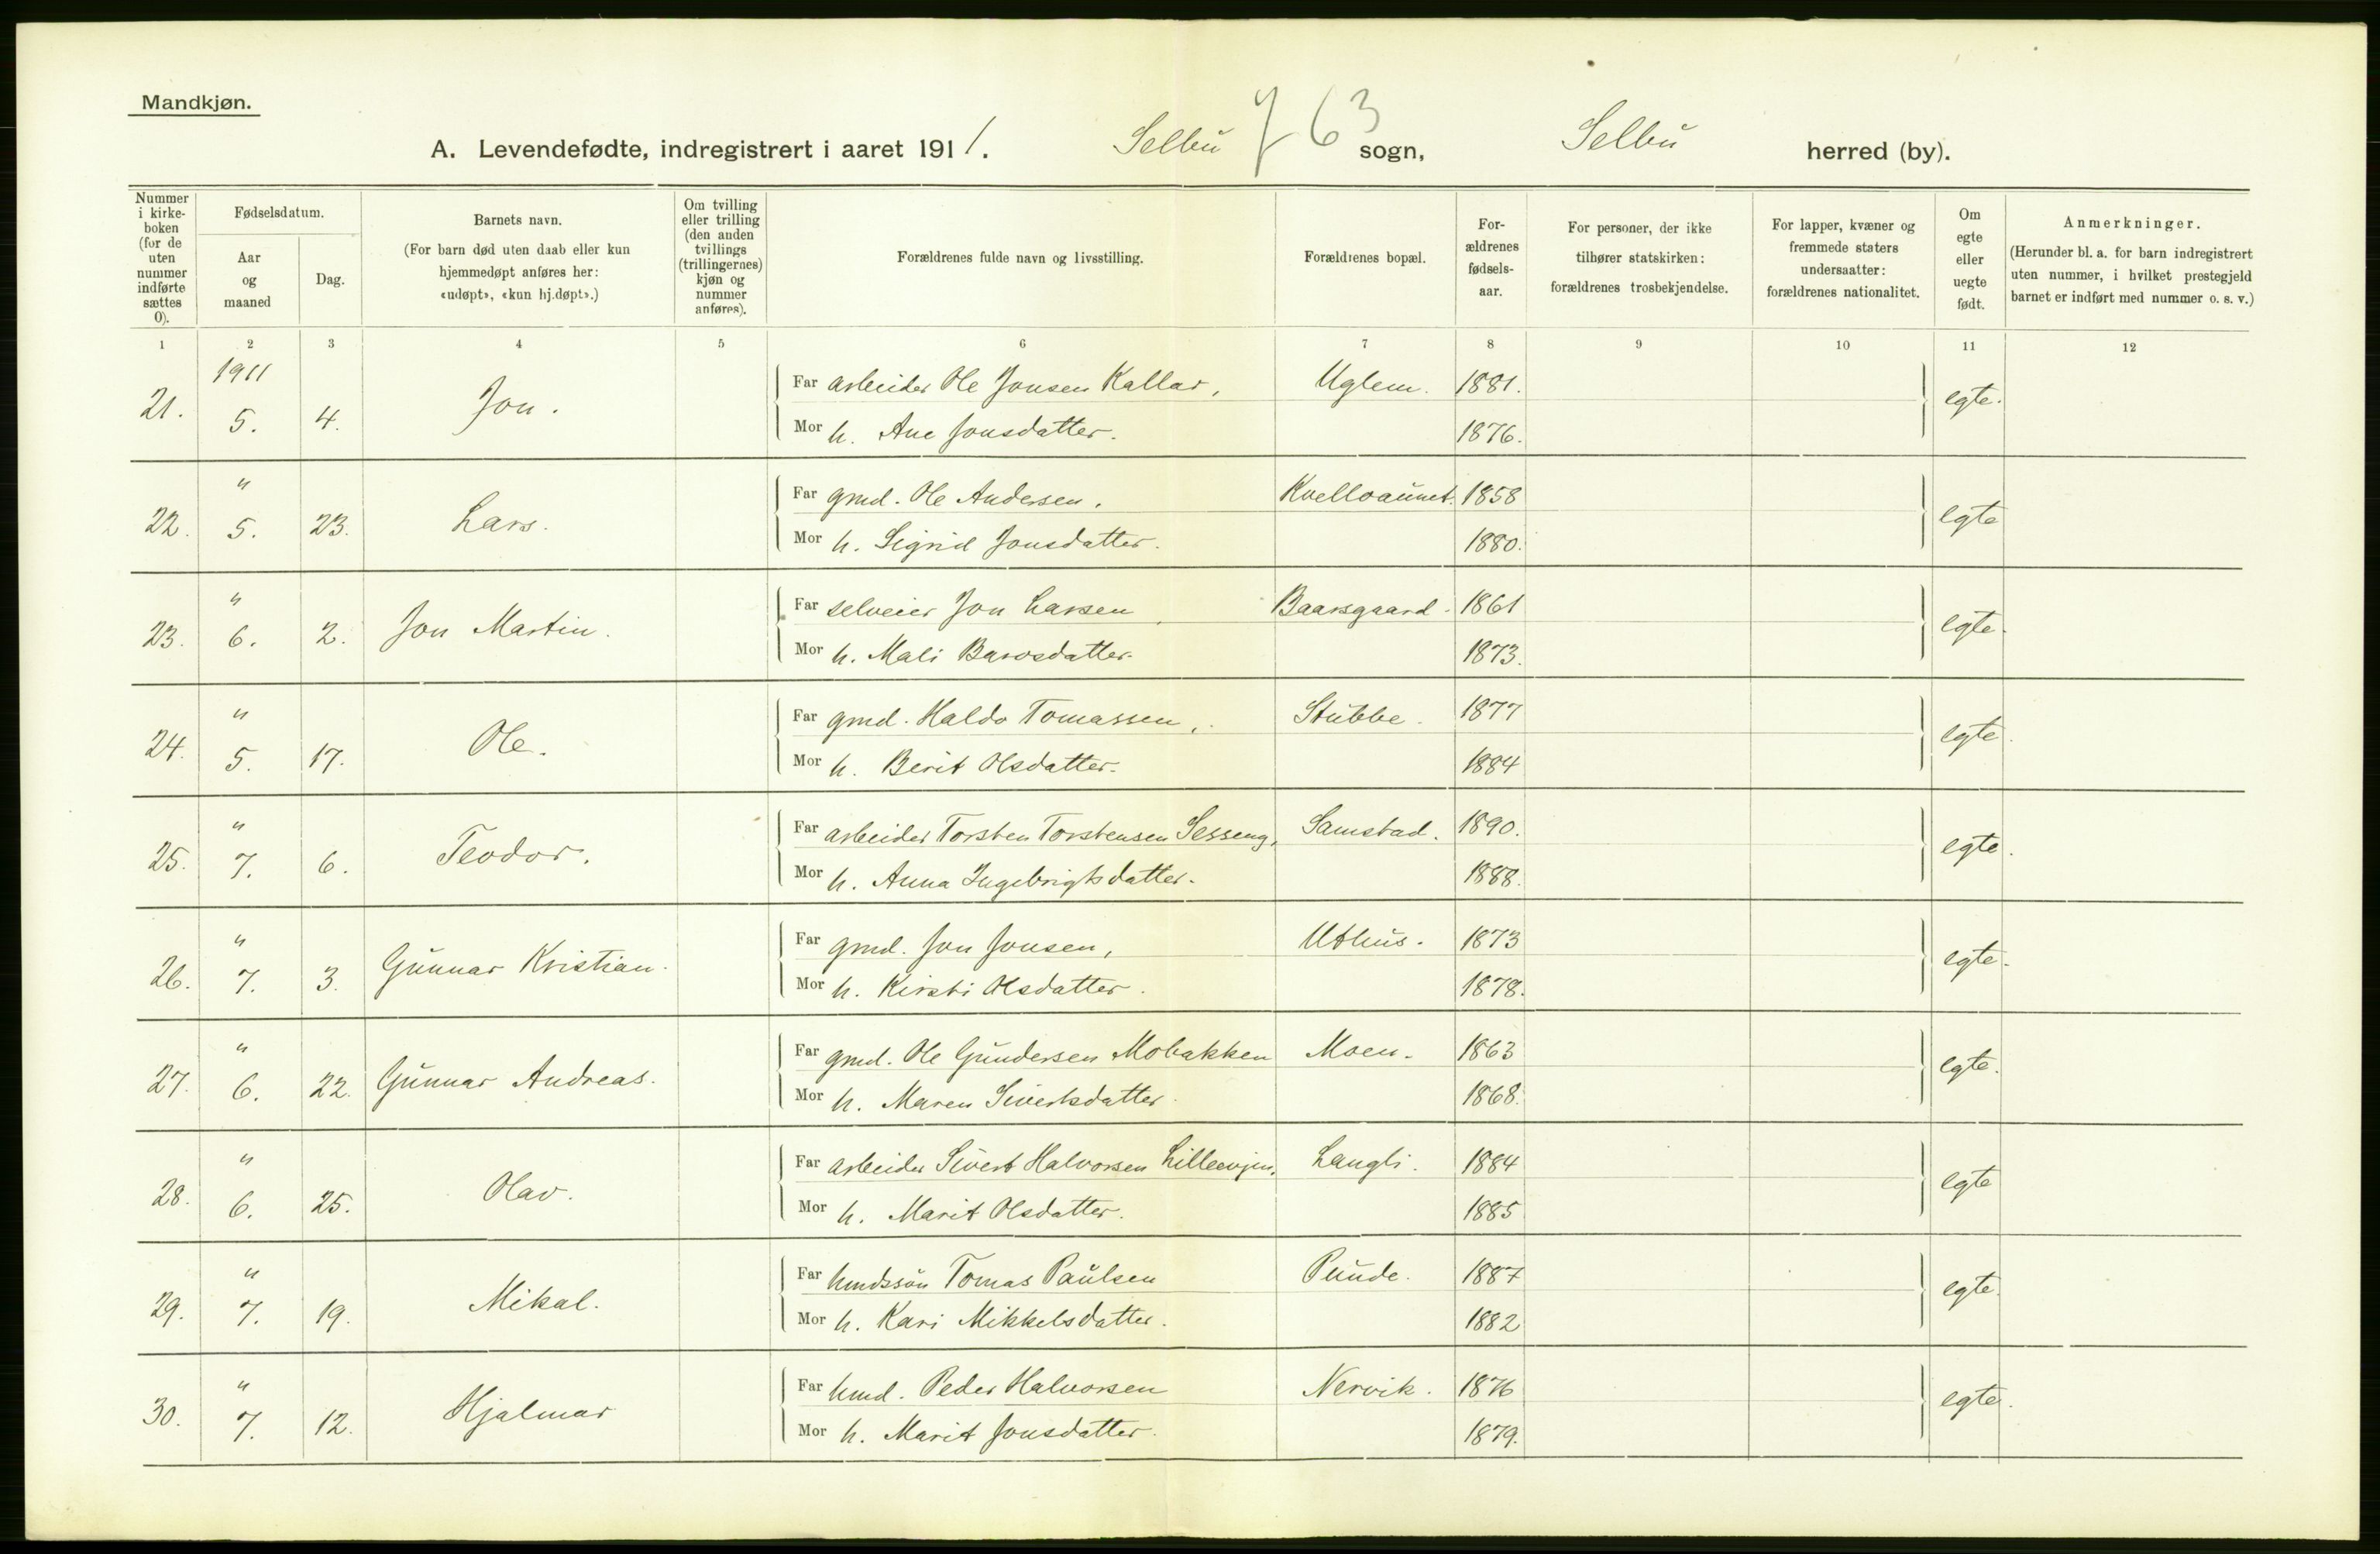 Mandkjøn.
A. Levendefødte, indregistrert i aaret 1911. Selbu 763 sogn, Selbu herred (by).
Nummer i kirke-boken (for de uten nummer indførte sættes 0).
Fødselsdatum.
Aar og maaned
Dag.
Barnets navn.
(For barn død uten daab eller kun hjemmedøpt anføres her: «udøpt», «kun hj.døpt».)
Om tvilling eller trilling (den anden tvillings (trillingernes) kjøn og nummer anføres).
Forældrenes fulde navn og livsstilling.
Forældrenes bopæl.
For-ældrenes fødsels-aar.
For personer, der ikke tilhører statskirken: forældrenes trosbekjendelse.
For lapper, kvæner og fremmede staters undersaatter: forældrenes nationalitet.
Om egte eller uegte født.
Anmerkninger.
(Herunder bl. a. for barn indregistrert uten nummer, i hvilket prestegjeld barnet er indført med nummer o. s. v.)
1 2 3 4 5 6 7 8 9 10 11 12
1911
21. 5. 4. Jon. Far arbeider Ole Jonsen Kallar, Uglem. 1881. egte.
Mor h. Ane Jonsdatter. 1876.
22. " 5. 23. Lars. Far gmd. Ole Andersen. Kvelloaunet. 1858 egte
Mor h. Sigrid Jonsdatter. 1880.
23. " 6. 2. Jon Martin. Far selveier Jon Larsen, Baarsgaard. 1861 egte.
Mor h. Mali Barosdatter. 1873.
24. " 5. 17. Ole. Far gmd. Haldo Tomassen, Stubbe. 1877 egte.
Mor h. Berit Olsdatter. 1884
25. " 7. 6. Teodor. Far arbeider Torsten Torstensen Sesseng, Samstad. 1890. egte.
Mor h. Anna Ingebrigtsdatter. 1888.
26. " 7. 3. Gunnar Kristian. Far gmd. Jon Jonsen, Uthus. 1873 egte.
Mor h. Kirsti Olsdatter. 1878.
27. " 6. 22. Gunnar Andreas. Far gmd. Ole Gundersen Mobakken Moen. 1863 egte.
Mor h. Maren Sivertsdatter. 1868.
28. " 6. 25. Olav. Far arbeider Sivert Halvorsen Lilleevjen, Langli. 1884 egte
Mor h. Marit Olsdatter. 1885
29. " 7. 19. Mikal. Far hmdssøn Tomas Paulsen Puude. 1887 egte.
Mor h. Kari Mikkelsdatter. 1882
30. " 7. 12. Hjalmar Far hmd. Peder Halvorsen Nervik. 1876 egte.
Mor h. Marit Jonsdatter. 1879.